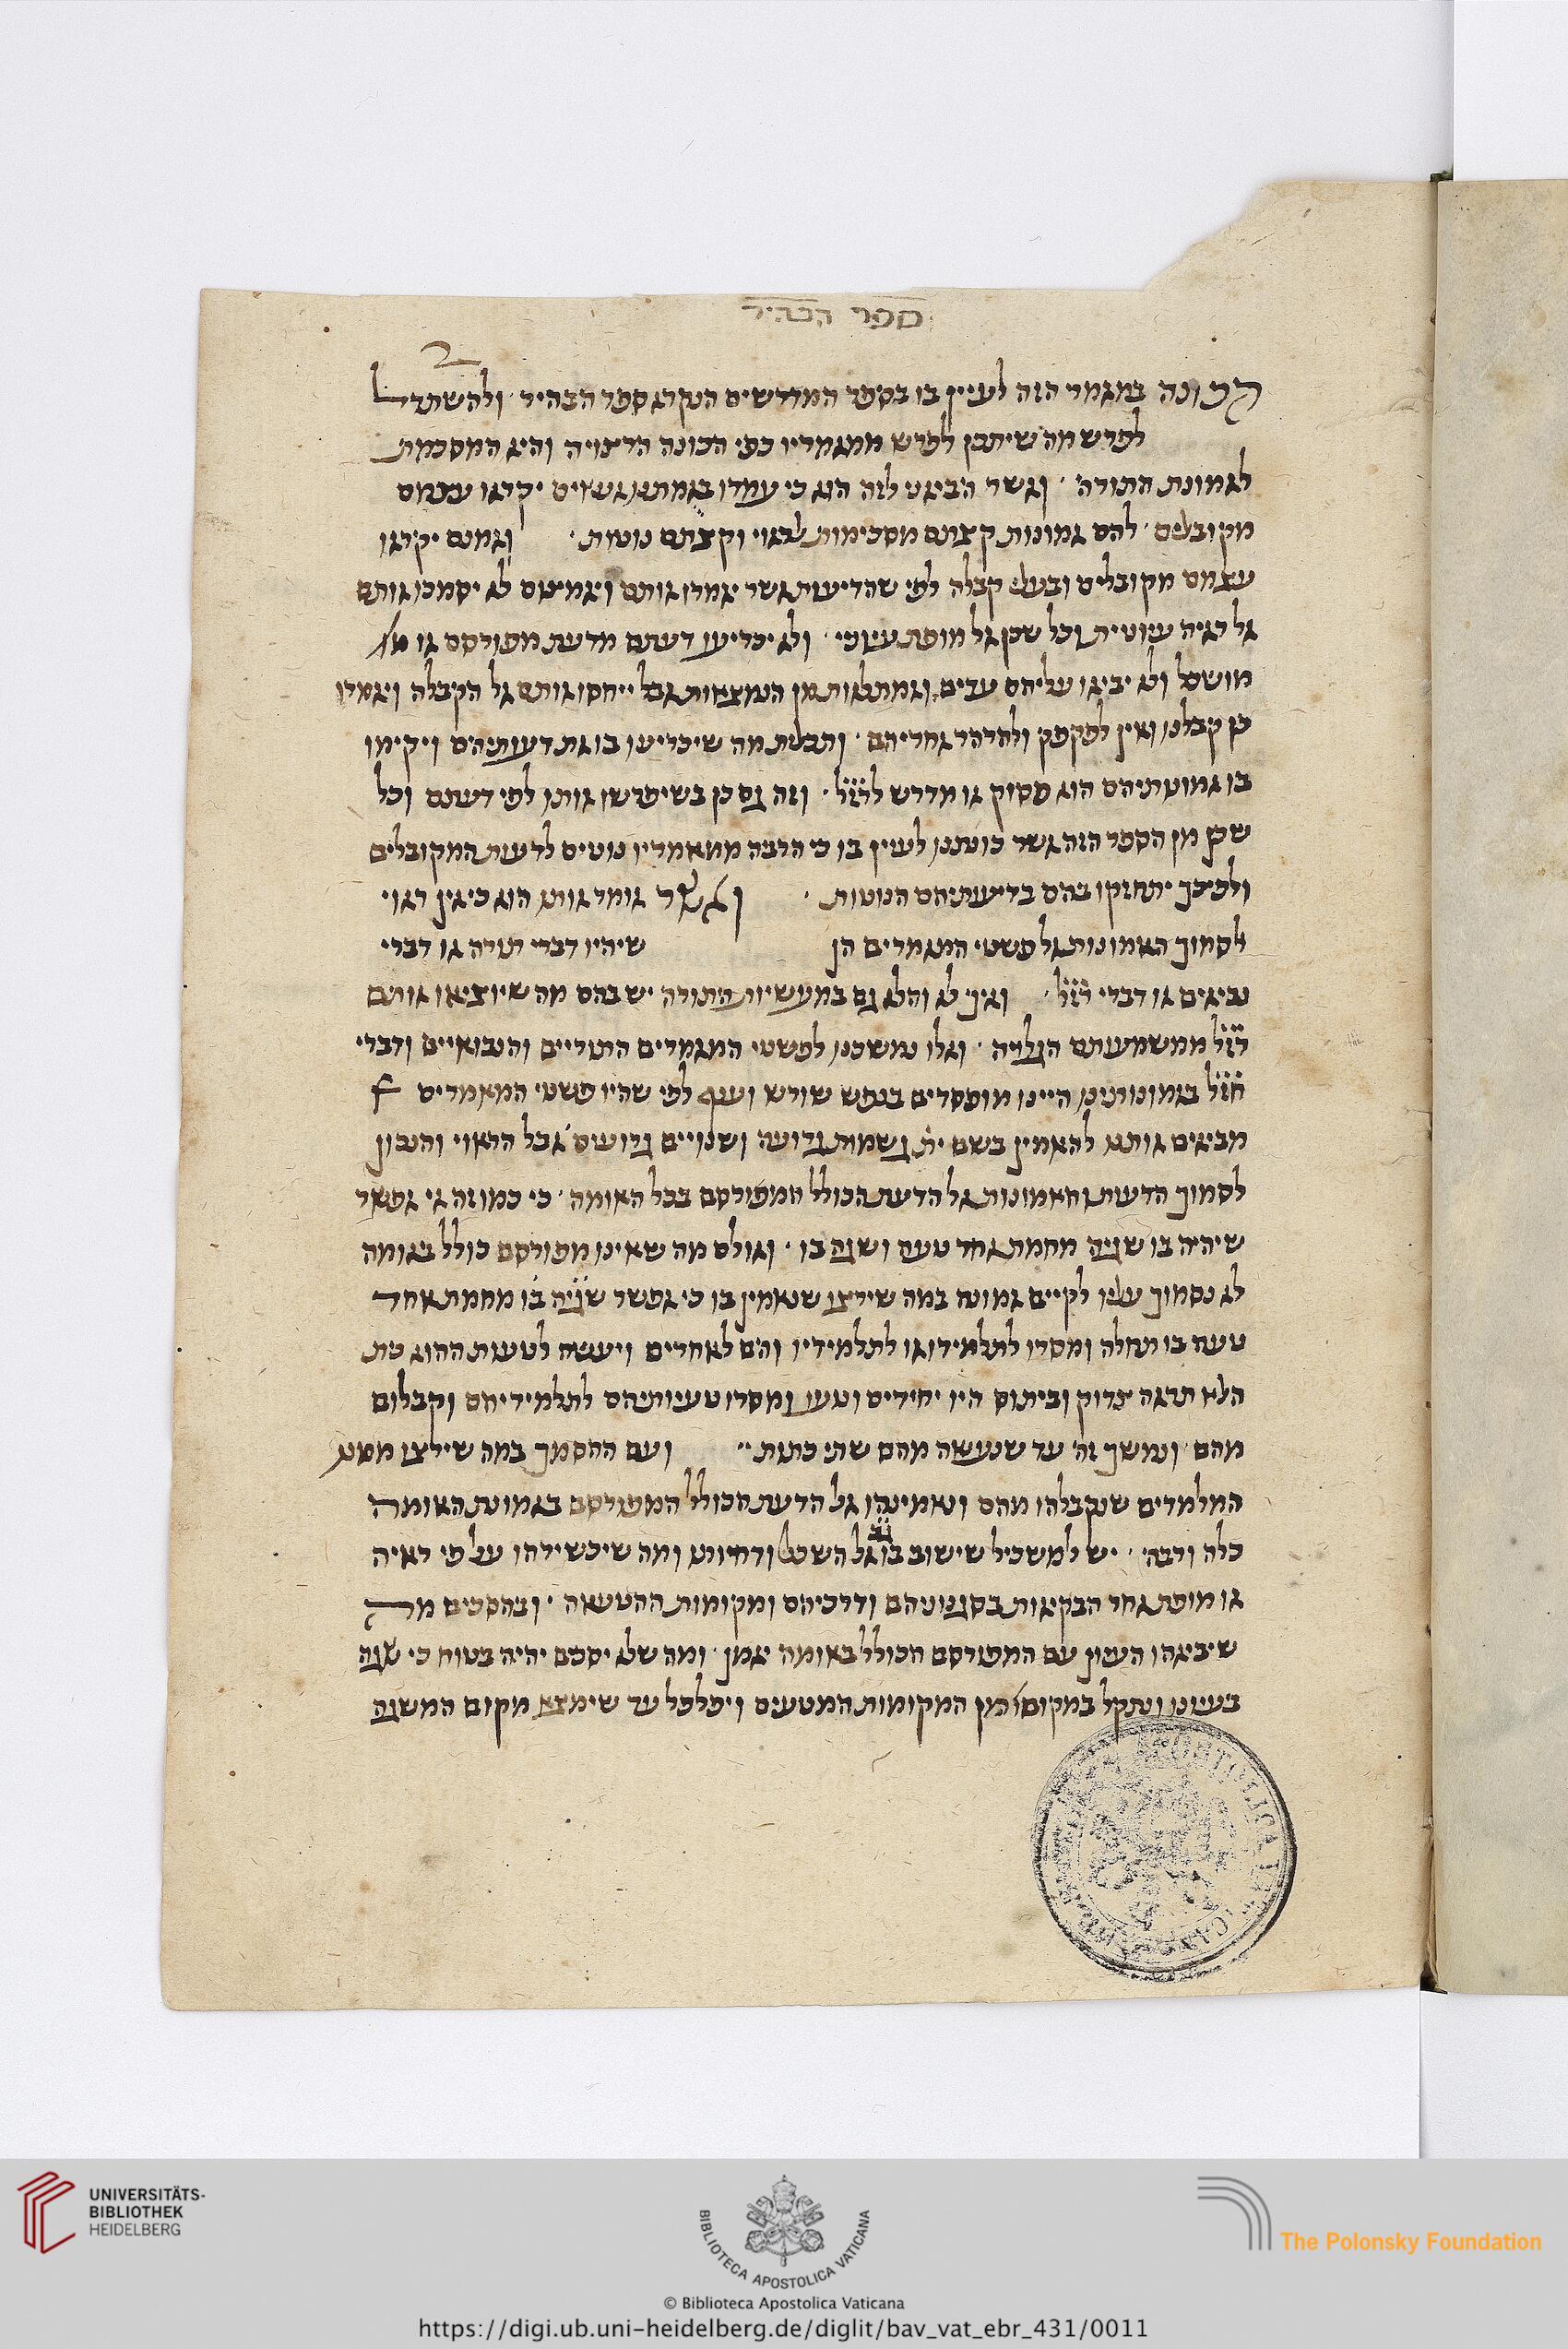 ספר הבהיר
הכונה במאמר הזה לעיין בו בספר המדרשים הנקרא ספר הבהיר ולהשתדל
לפרש מה שיתכן לפרש ממאמריו כפי הכונה הרצויה והיא המסכמת
לאמונת התורה · ואשר הביאנו לזה הוא כי עמדו באמתנו אנשים יקראו עצמם
מקובלים · להם אמונות קצתם מסכימות לראוי וקצתם נוטות · ואמנם יקראו
עצמם מקובלים ובעלי קבלה לפי שהדיעות אשר יאמרו אותם ויאמינום לא יסמכו אותם
אל ראיה עיונית וכל שכן אל מופת עיוני · ולא יכריעו דעתם מדעת מפורסם או
מושכל ולא יביאו עליהם עדים ואמתלאות מן הנמצאות אבל ייחסו אותם אל הקבלה ויאמרו
כן קבלנו ואין לפקפק ולהרהר אחריהם · ותכלית מה שיכריעו בו את דעותיהם ויקימו
בו אמונתיהם הוא פסוק או מדרש לרז״ל · וזה גם כן בשיפרשו אותו לפי דעתם וכל
שכן מן הספר הזה אשר כונתנו לעיין בו כי הרבה ממאמריו נוטים לדעות המקובלים
ולפיכך יתחזקו בהם בדיעותיהם הנוטות · ואשר אומר אותו הוא כי אין ראוי
לסמוך האמונות אל פשטי המאמרים הן שיהיו דברי תורה או דברי
נביאים או דברי רז״ל · ואיך לא והלא גם במעשיות התורה יש בהם מה שיוציאו אותם
רז״ל ממשמעותם הנגלית · ואלו נמשכנו לפשטי המאמרים התוריים והנבואיים ודברי
חז״ל באמונותינו היינו מופסדים בנפש שורש וענף לפי שהיו פשטי המאמרים
מביאים אותנו להאמין בשם ית׳ גשמות גדועה ושנויים גדועים אבל הראוי והנכון
לסמוך הדעות והאמונות אל הדעת הכולל המפורסם בכל האומה · כי כמו זה אי אפשר
שיהיה בו שגיה מחמת אחד טעה ושגה בו · ואולם מה שאינו מפורסם כולל באומה
לא נסמוך עליו לקיים אמונה במה שירצו שנאמין בו כי אפשר שגיה בו מחמת אחד
טעה בו תחלה ומסרו לתלמידו או לתלמידיו והם לאחרים ויעשה לטעות ההוא כת
הלא תראה צדוק וביתוס היו יחידים וטעו ומסרו טעיותיהם לתלמידיהם וקבלום
מהם · ונמשך זה עד שנעשה מהם שתי כתות ·· ועם ההסמך במה שירצו ממנו
המלמדים שנקבלהו מהם ונאמינהו אל הדעת הכולל המפורסם באמונת האומה
כלה ורבה · יש למשכיל שישוב בו גם אל השכל ודחיותו ומה שיכשירהו על פי ראיה
או מופת אחר הבקיאות בסגנוניהם ודרכיהם ומקומות ההטעאה · ובהסכים מה
שיביאהו העיון עם המפורסם הכולל באומה יאמן · ומה שלא יסכם יהיה בטוח כי שגה
בעיונו ונתקל במקום מן המקומות המטעים ויפלפל עד שימצא מקום המשגה
UNIVERSITÄTS-
BIBLIOTHEK
HEIDELBERG
BIBLIOTECA APOSTOLICA VATICANA
The Polonsky Foundation
© Biblioteca Apostolica Vaticana
https://digi.ub.uni-heidelberg.de/diglit/bav_vat_ebr_431/0011